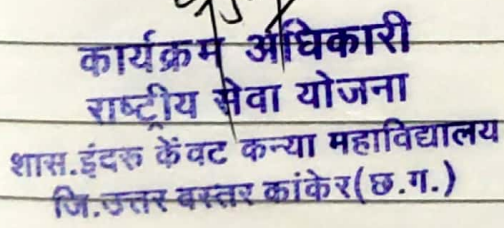 कार्यक्रम अधिकारी
राष्ट्रीय सेवा योजना
शास.इंदरु केंवट कन्या महाविद्यालय
जि.उत्तर बस्तर कांकेर(छ.ग.)